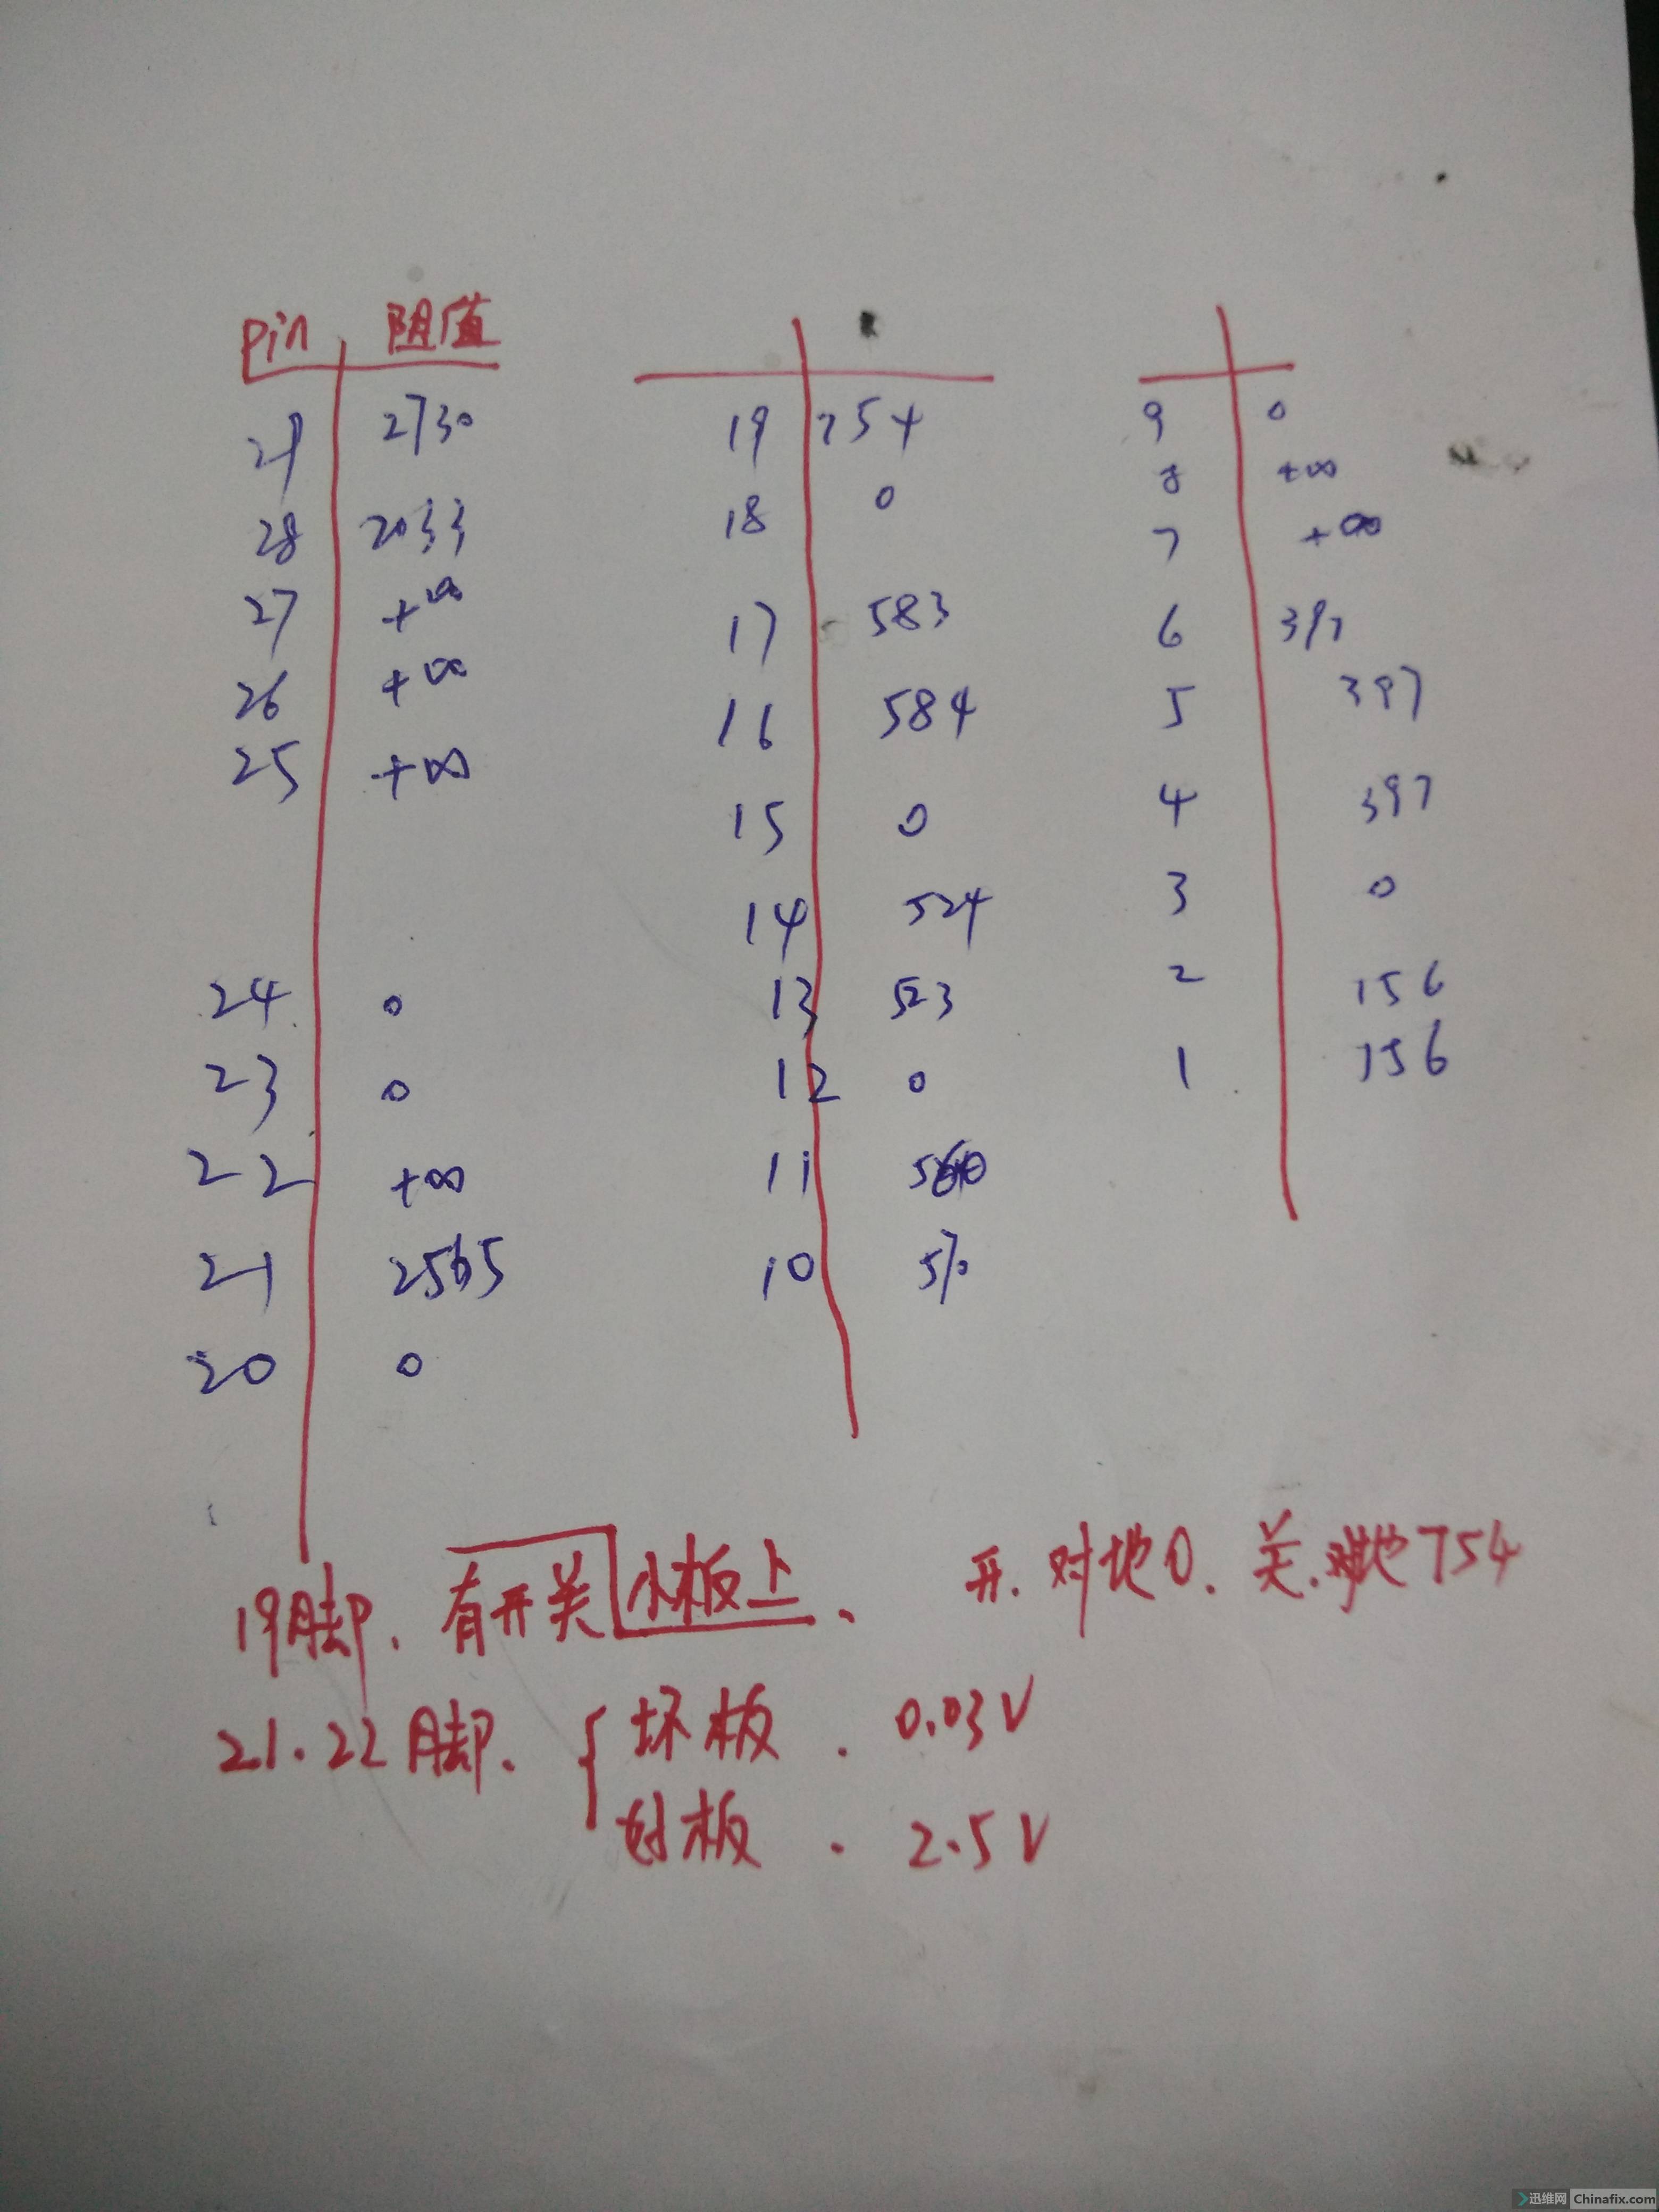 pin 阻值
29 2730
28 2033
27 +∞
26 +∞
25 +∞
24 0
23 0
22 +∞
21 2565
20 0
19 754
18 0
17 583
16 584
15 0
14 524
13 523
12 0
11 560
10
9 0
8 +∞
7 +∞
6 397
5 397
4 397
3 0
2 156
1 156
19脚. 有开关 小板上、 开. 对地0. 关. 对地754
21.22脚. { 坏板 . 0.03V
好板 . 2.5V
迅维网 Chinafix.com